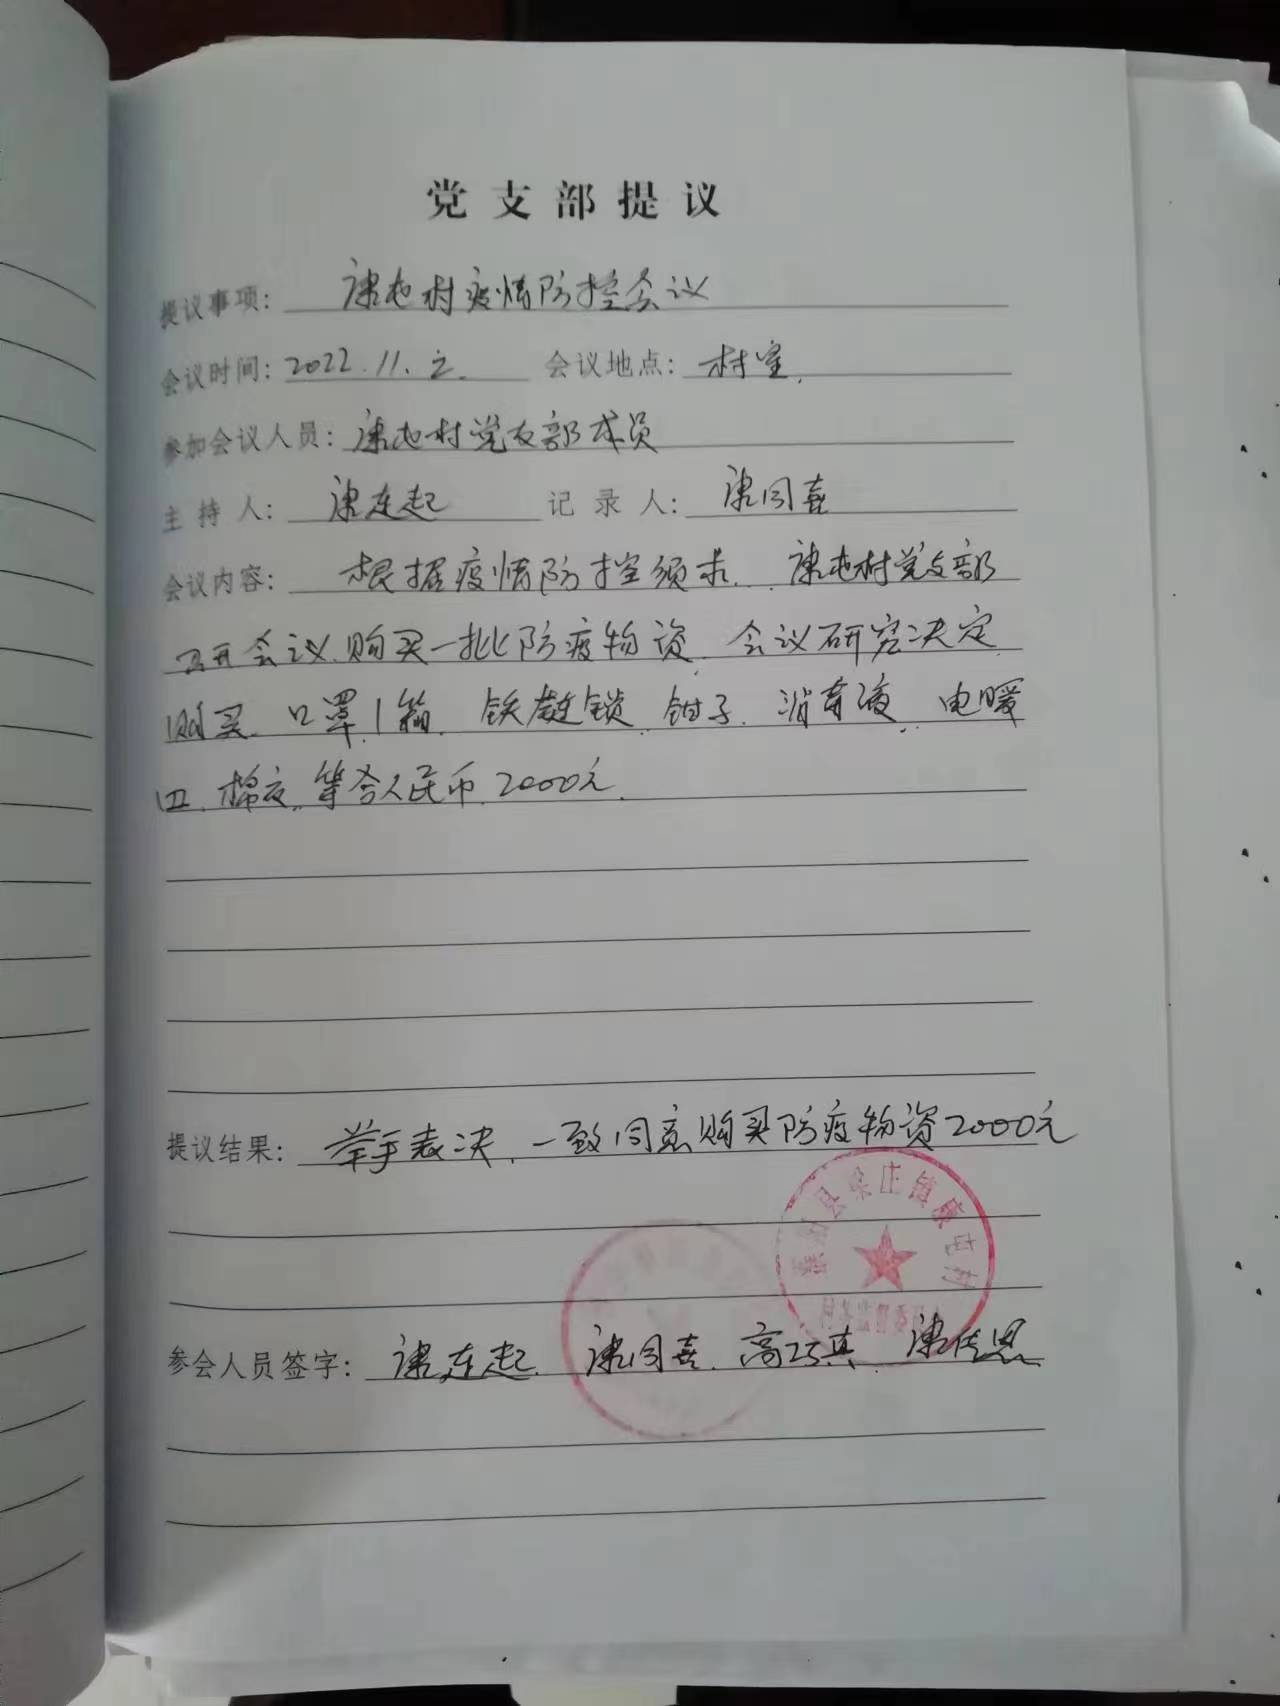 党支部提议
提议事项: 康屯村疫情防控会议
会议时间: 2022.11.2. 会议地点: 村室.
参加会议人员: 康屯村党支部成员
主持人: 康连起 记录人: 康同喜
会议内容: 根据疫情防控须求. 康屯村党支部
召开会议.购买一批防疫物资. 会议研究决定
购买. 口罩1箱. 铁链锁. 钳子. 消毒液. 电暖
四. 棉衣. 等合人民币.2000元.
提议结果: 举手表决. 一致同意购买防疫物资2000元
县梁庄镇康屯村
村务监督委员会
参会人员签字: 康连起. 康同喜. 高巧真. 康传恩